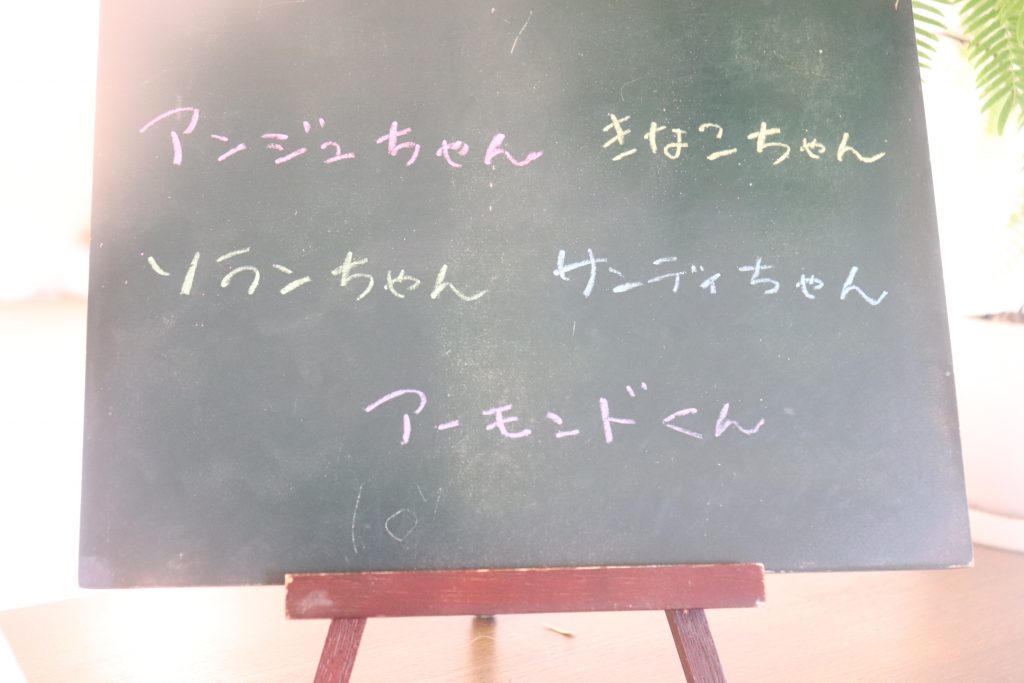 アンジュちゃん きなこちゃん
ソランちゃん サンディちゃん
アーモンドくん